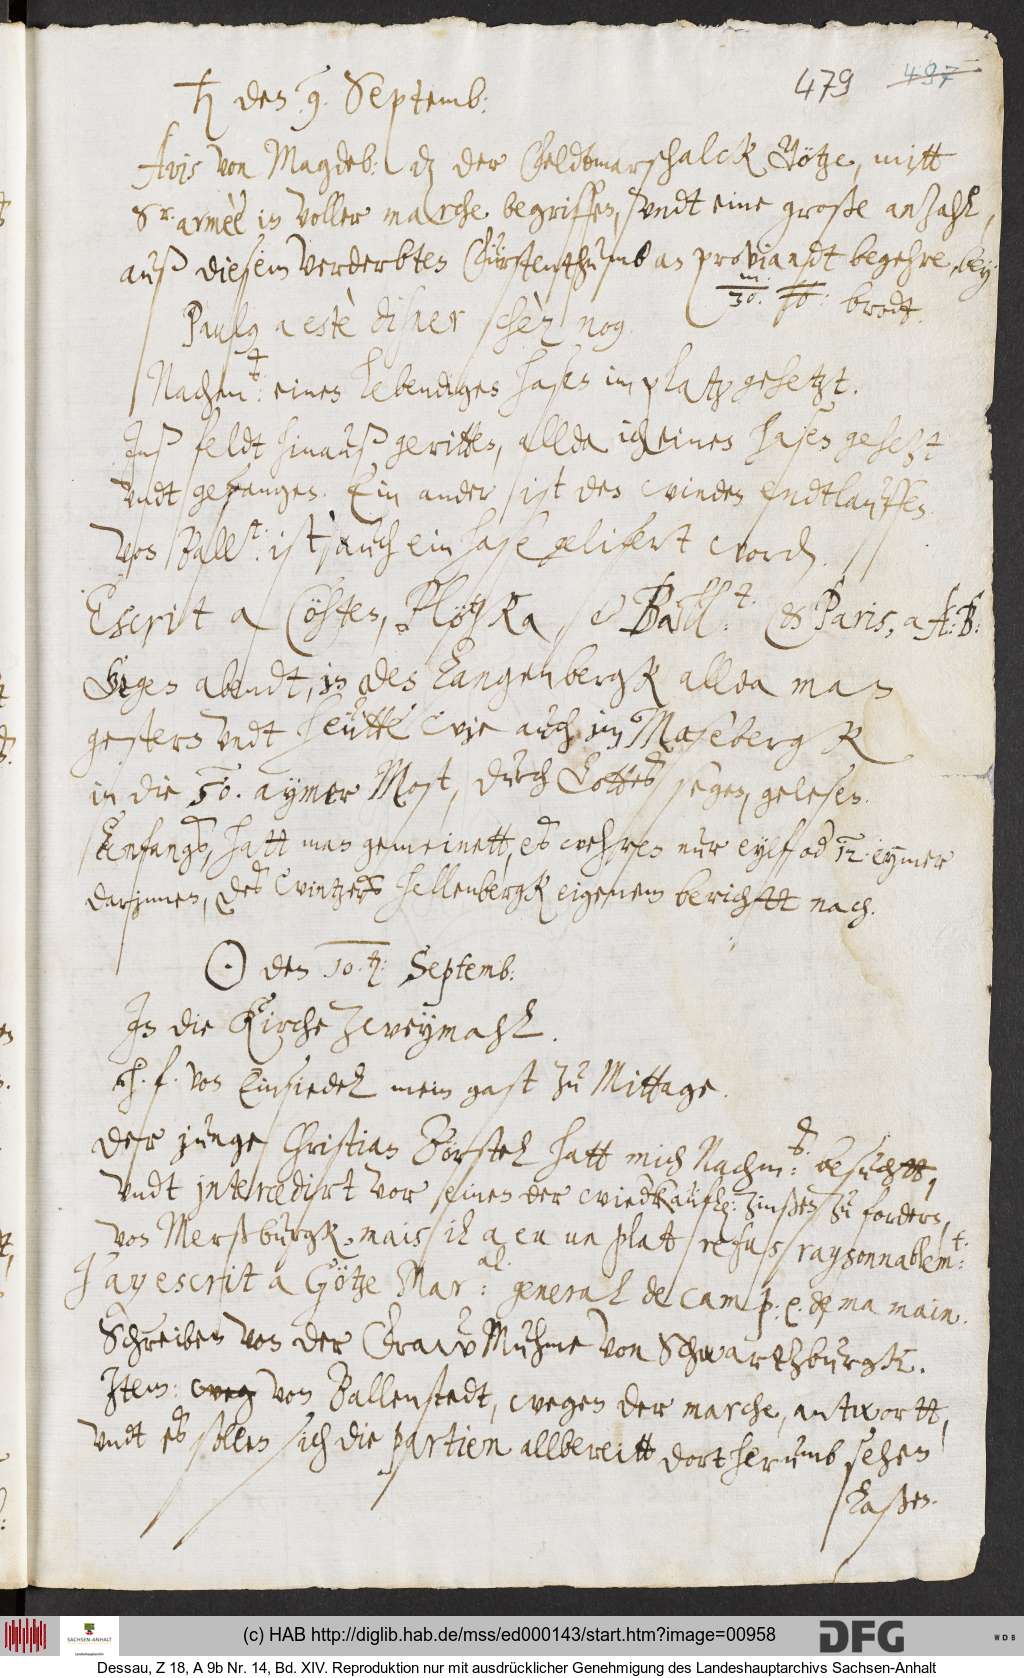 479 497
♄ den 9. Septemb:
Avis von Magdeb: dz der Veldtmarschalck Götze, mitt
Sr. armèè in voller marche begriffen, vndt eine große anzahl,
auß diesem verderbten Fürstenthumb an proviandt begehre, bey
m/30. lb: brodt.
Paulg a estè disner chèz nog
Nachmt: einen lebendigen hasen im platz gehetzt.
Inß feldt hinauß geritten, allda ich einen hasen gehetzt
vndt gefangen. Ein ander ist den winden endtlauffen.
Von Ballt: ist auch ein hase gelifert word
Escrit a Cöhten, Plötzka, e Ballt: & Paris, a A: B:
Gegen abendt, in den Langenbergk allda man
gestern vndt heütte wje auch im Maseberg k
in die 50. aymer Most, durch Gottes segen, gelesen.
Anfangs, hatt man gemeinett, es wehren nur eylf od 12. eymer
darjnnen, des wintzers Hellenbergk eigenem berichtt nach.
☉ den 10. h: Septemb:
In die Kirche zweymahl.
H. f. von Einsiedel mein gast zu Mittage.
Der junge Christian Börstel hatt mich Nachmt: besuchtt,
vndt jntercedirt vor einen der wiedkäufl: zinßen zu fordern,
von Merßburgk. mais il a eu un plat refus raysonnablemt:
J'ay escrit a Götze Maral: general de camp: e. de ma main.
Schreiben von der Fraw Muhme von Schwartzburgk.
Item: weg von Ballenstedt, wegen der marche, antwortt,
vndt es sollen sich die partien allbereitt dort herumb sehen
laßen.
(c) HAB http://diglib.hab.de/mss/ed000143/start.htm?image=00958
SACHSEN-ANHALT
DFG
WDB
Dessau, Z 18, A 9b Nr. 14, Bd. XIV. Reproduktion nur mit ausdrücklicher Genehmigung des Landeshauptarchivs Sachsen-Anhalt